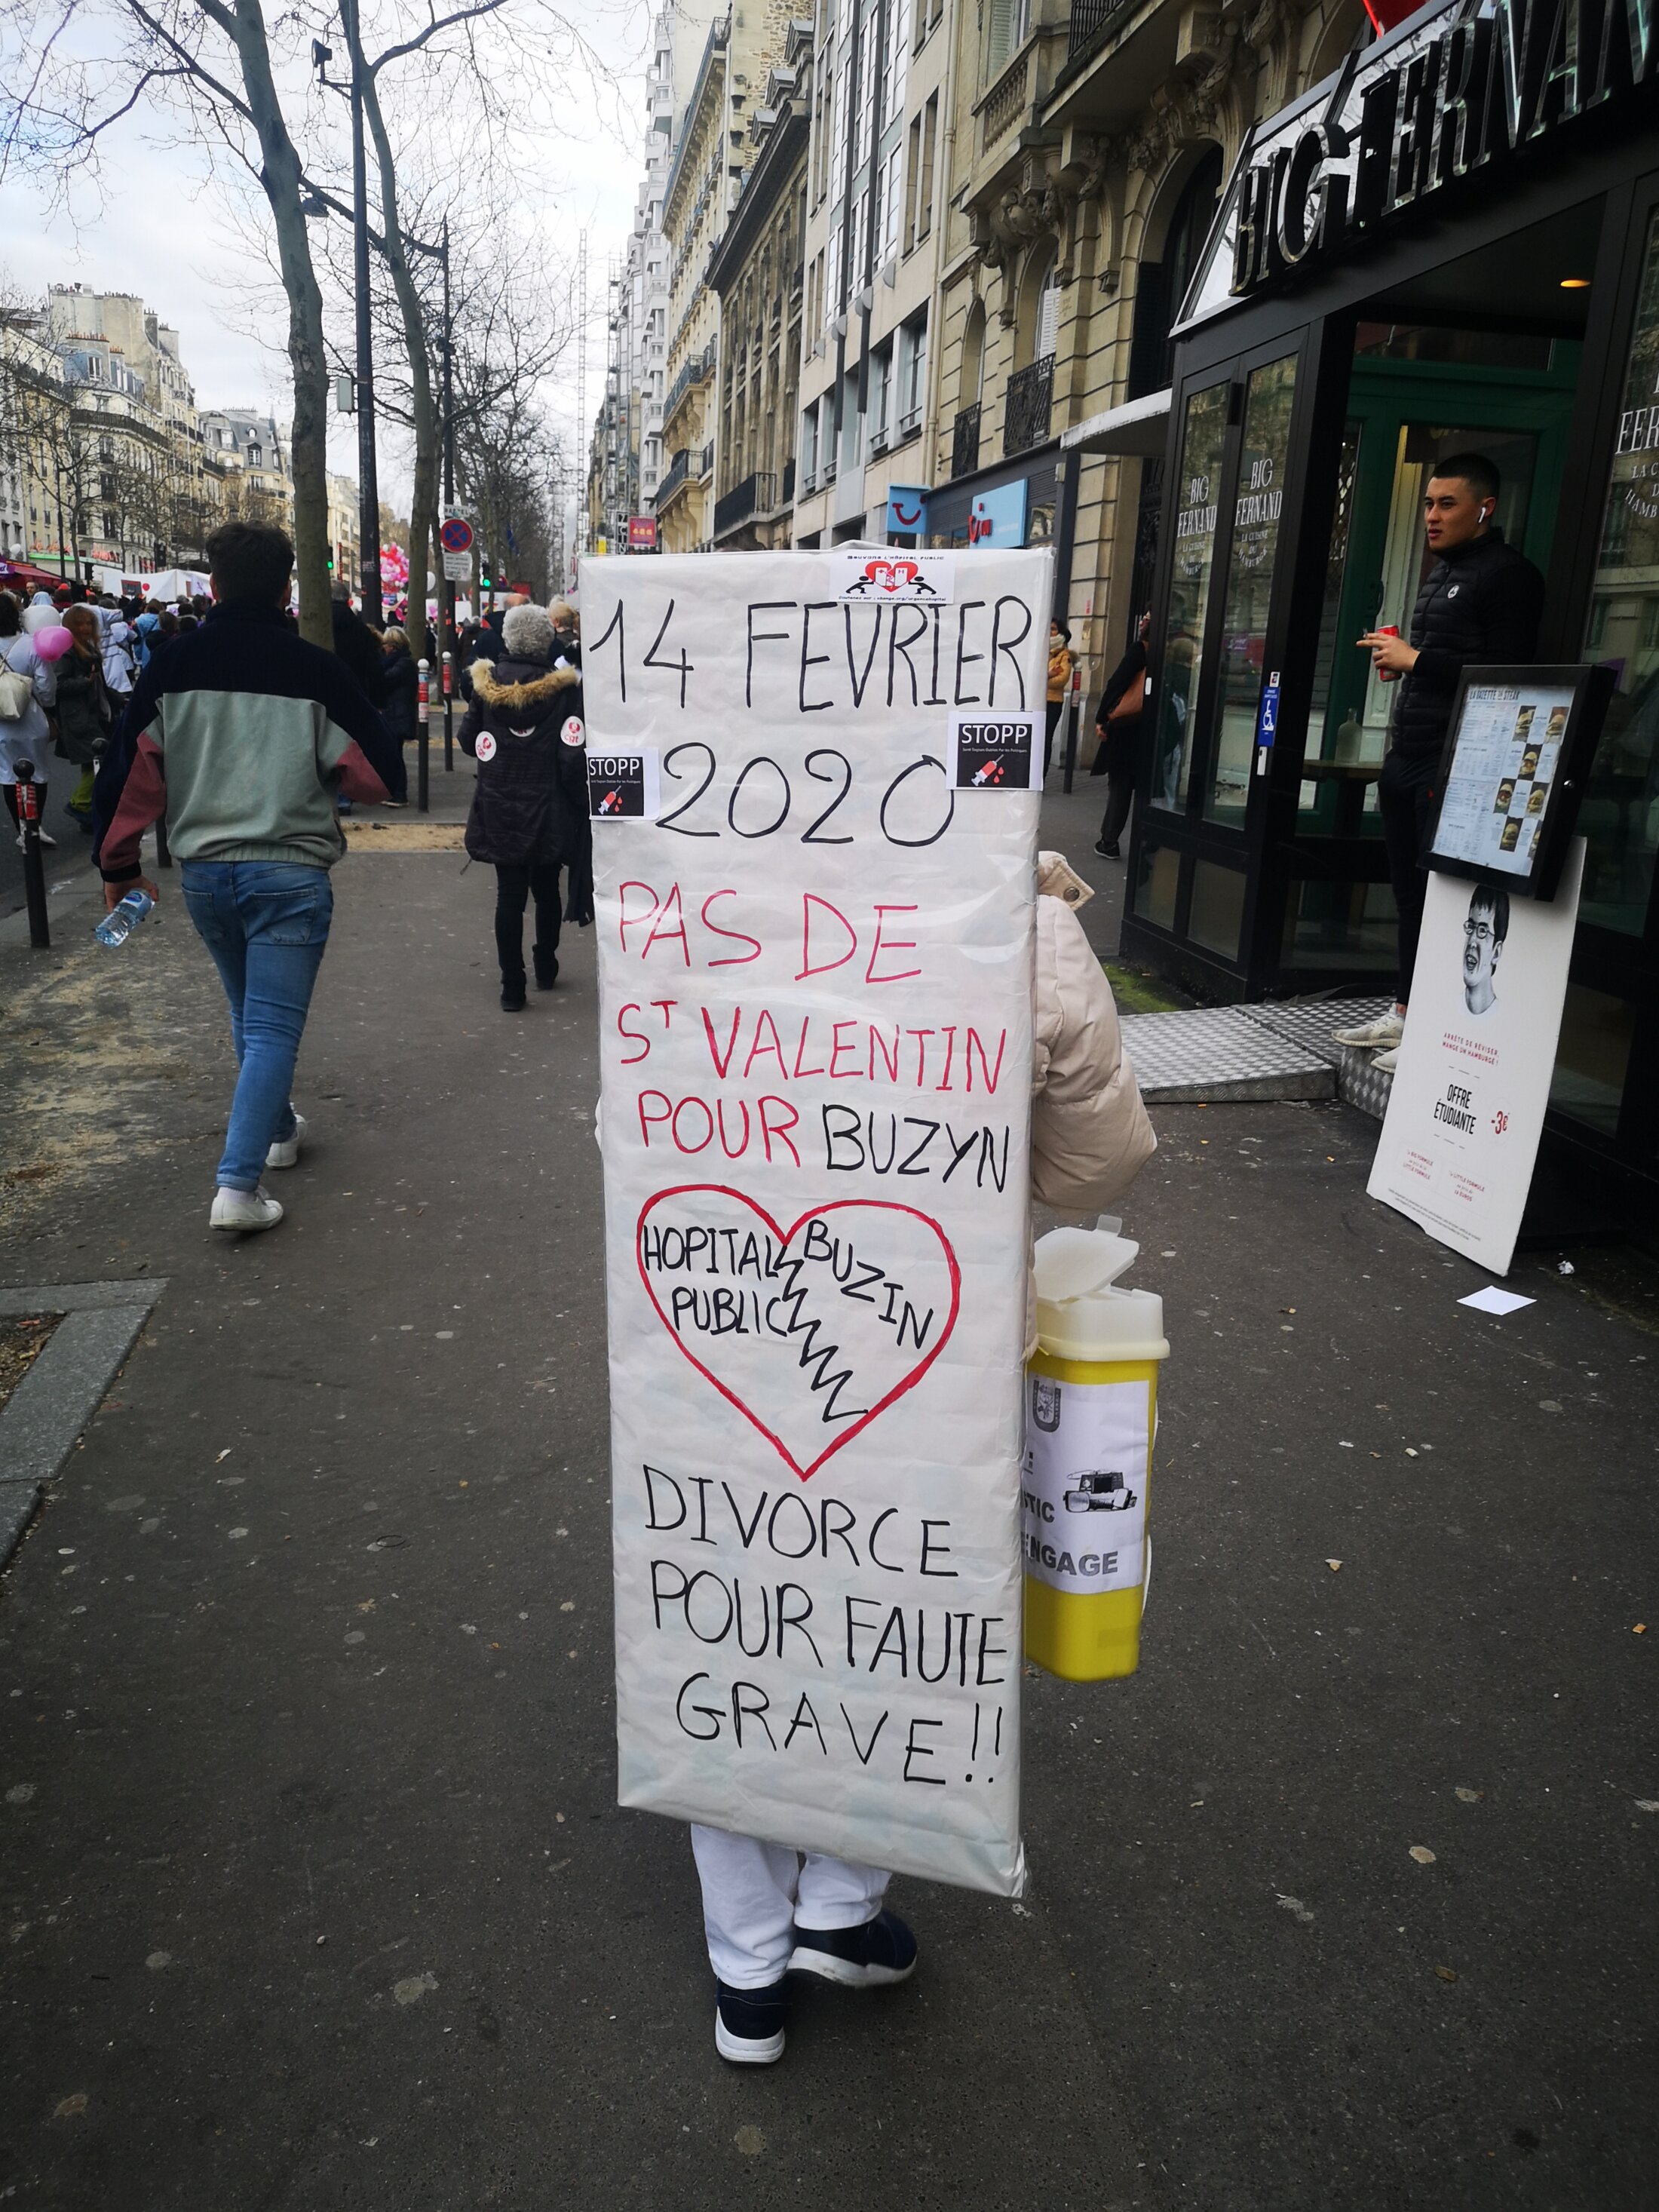 BIG FERNAN
SAUVONS L'HÔPITAL PUBLIC
14 FEVRIER
STOPP
2020
STOPP
PAS DE
ST VALENTIN
POUR BUZYN
HOPITAL BUZIN
PUBLIC
DIVORCE
POUR FAUTE
GRAVE!!
TIC
ENGAGE
BIG
FERNAND
LA CUISINE
BIG
FERNAND
LA CUISINE
FER
LA GAZETTE DU STEAK
ARRÊTE DE RÉVISER,
MANGE UN HAMBURGÉ !
OFFRE
ÉTUDIANTE
-3€